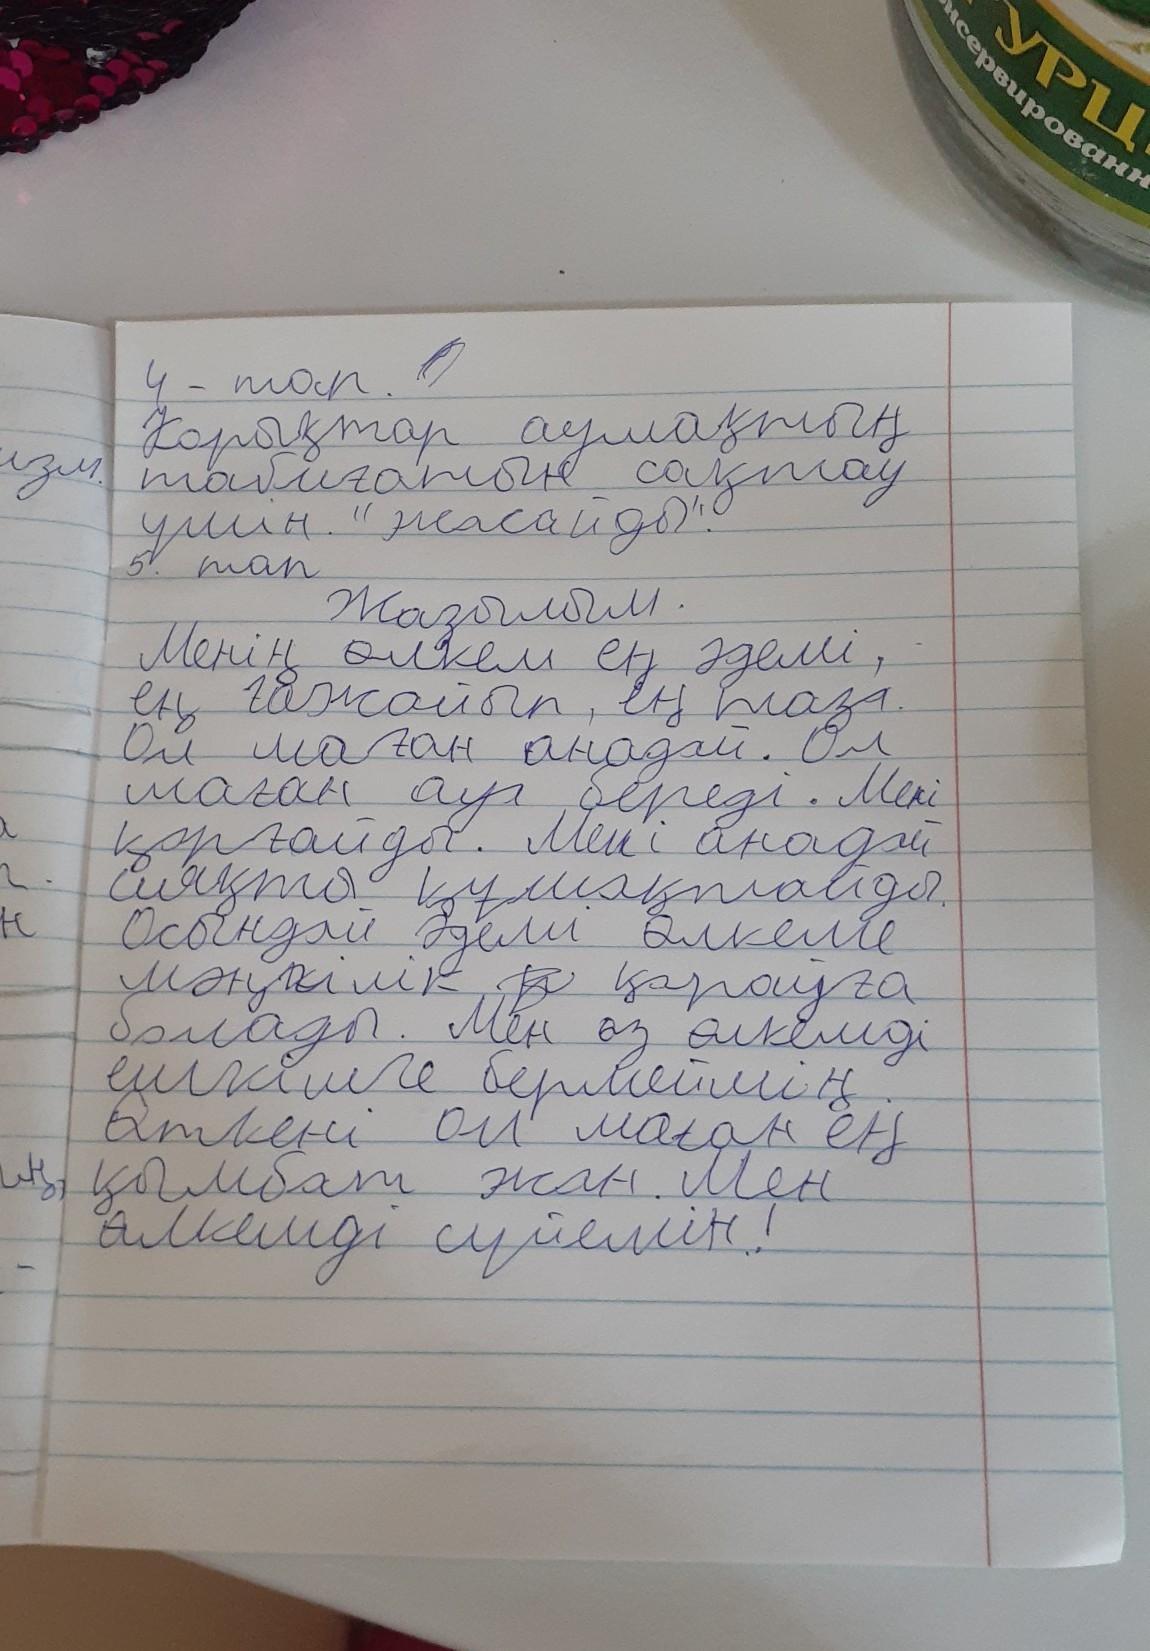 ГУРЦ
онсервированн
4 - тап.
Қорықтар аумақтың
табиғатын сақтау
үшін. "жасайды".
5. тап
Жазылым.
Менің өлкем ең әдемі,
ең ғажайып, ең таза.
Ол маған анадай. Ол
маған ауа береді. Мені
қорғайды. Мені анадай
сияқты құшақтайды.
Осындай әдемі өлкеме
мәңгілік қарауға
болады. Мен өз өлкемді
ешкімге бермеймін.
Өткені ол маған ең
қымбат жан. Мен
өлкемді сүйемін!
изм.